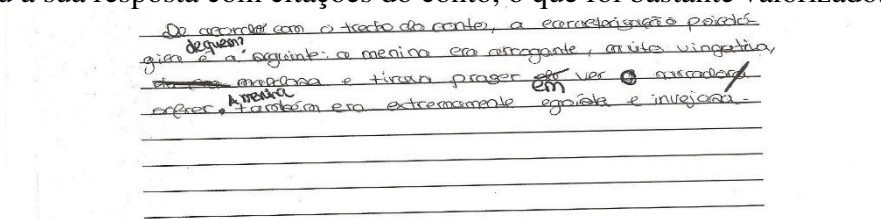 u a sua resposta com citações do conto, o que foi bastante valorizado
De acordo com o trecho do conto, a caracterização psicoló
de quem?
gica é a seguinte: a menina era arrogante, muito vingativa,
e tirava prazer em ver a narradora
sofrer, A menina também era extremamente egoísta e invejosa.